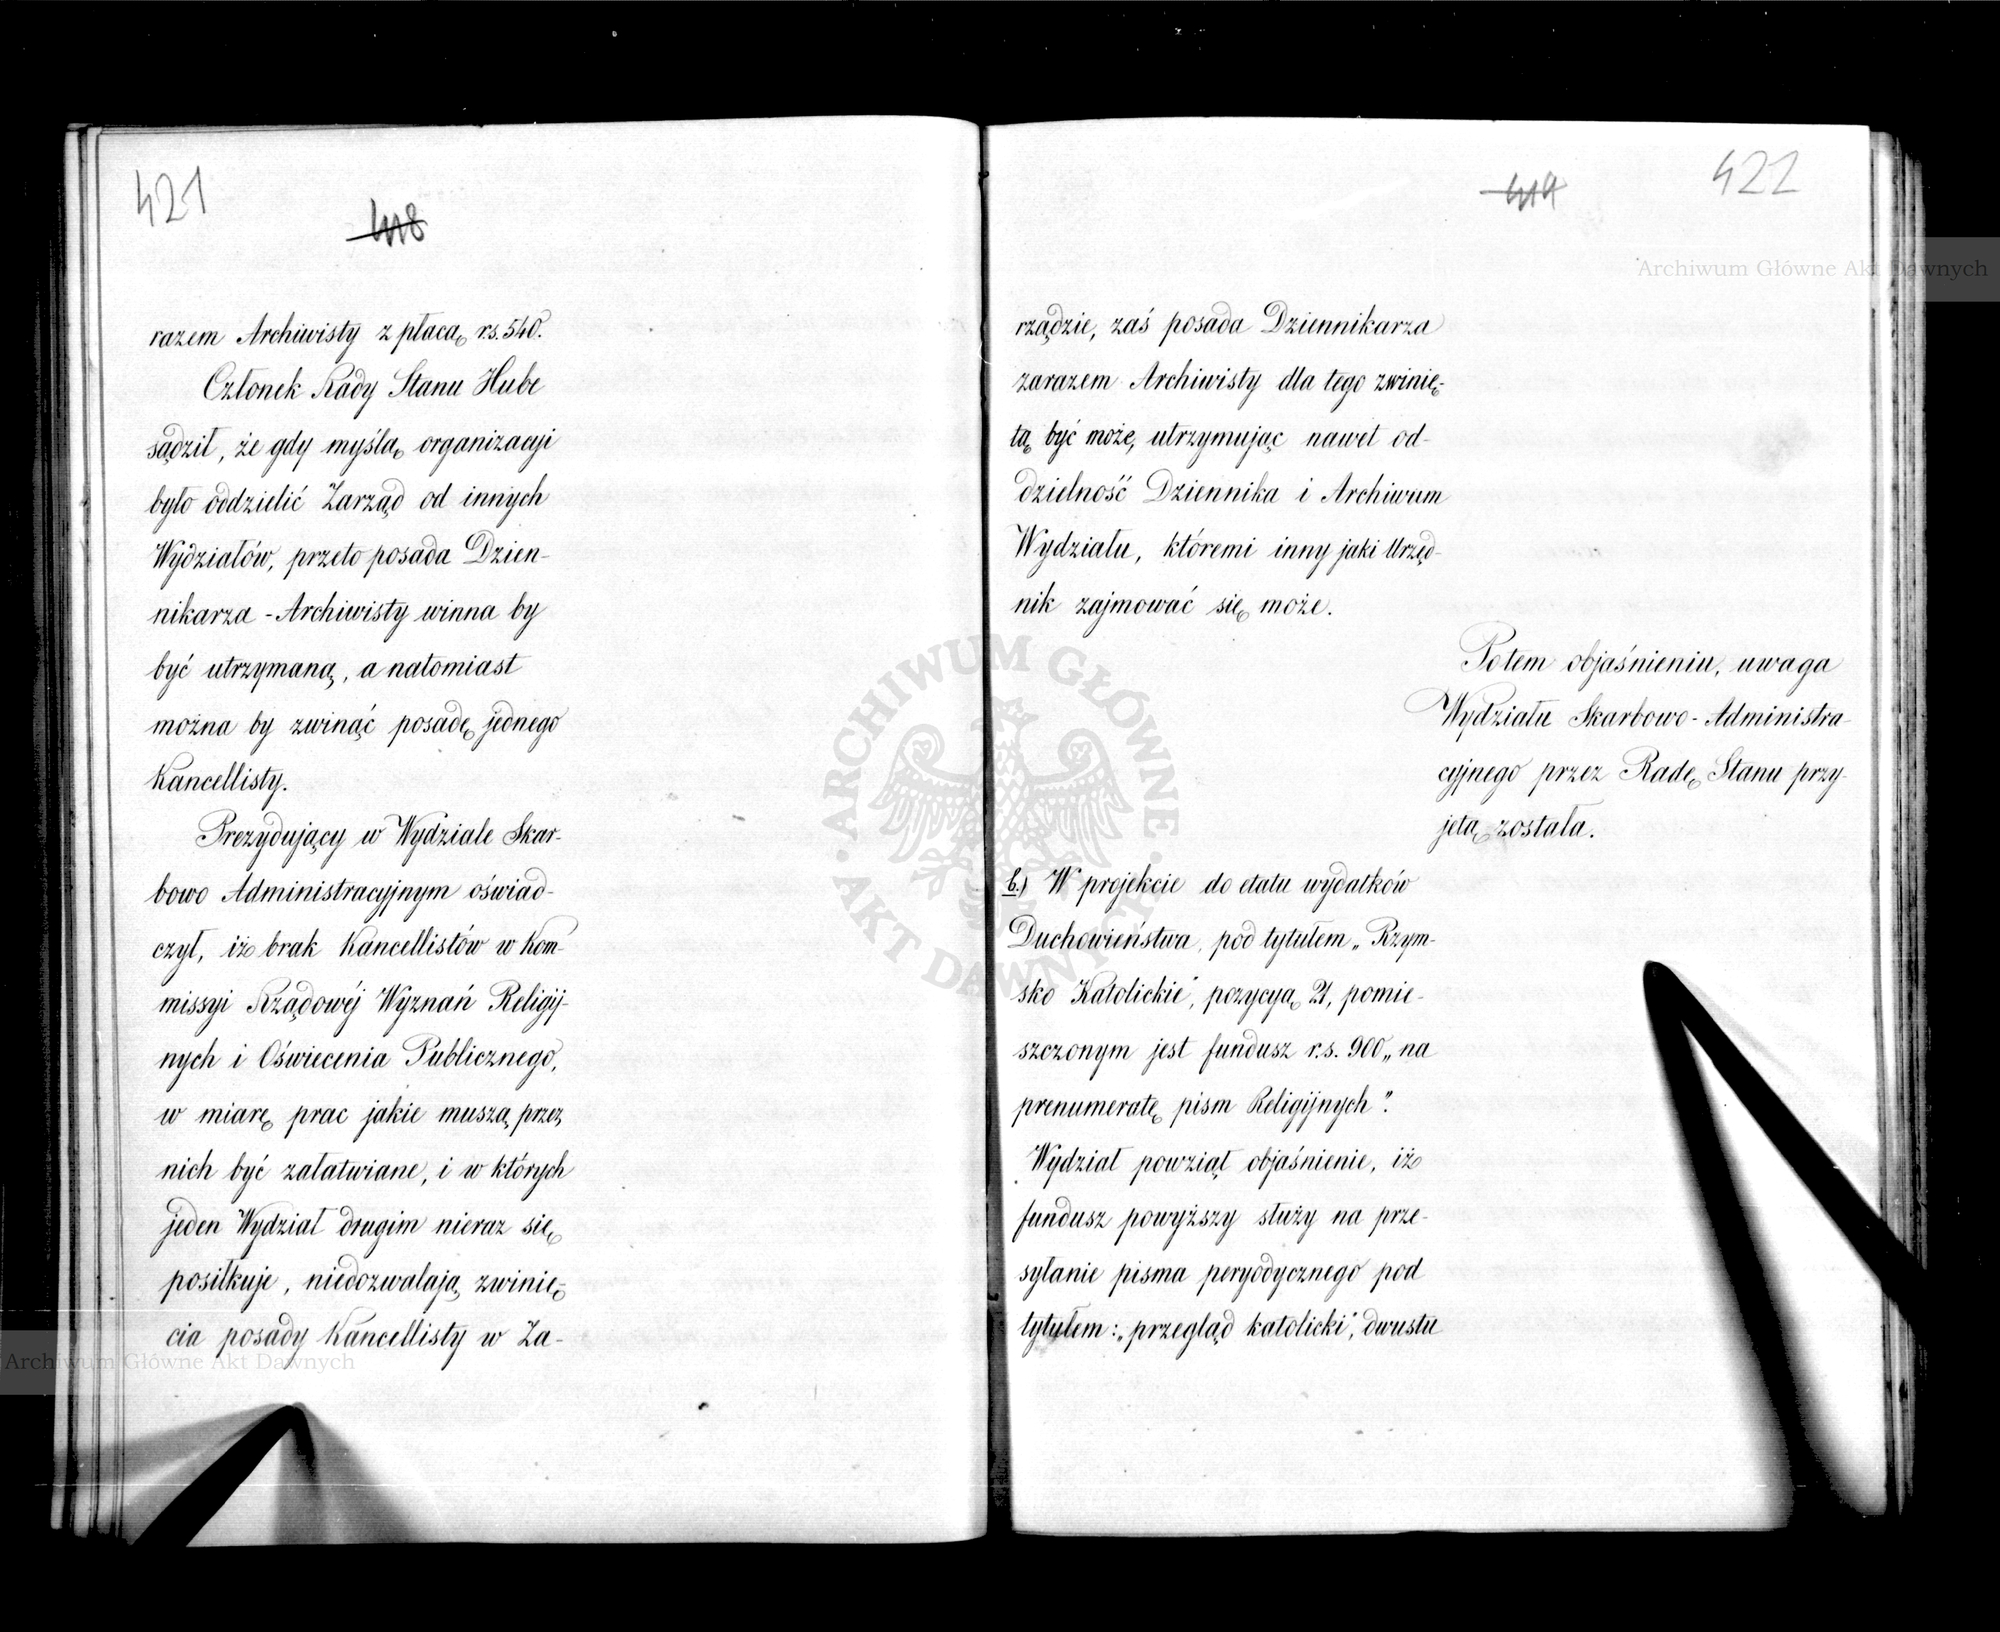 421
418
razem Archiwisty z płacą rs. 540.
Członek Rady Stanu Hube
sądził, że gdy myślą organizacyi
było oddzielić Zarząd od innych
Wydziałów, przeto posada Dzien-
nikarza - Archiwisty winna by
być utrzymaną, a natomiast
można by zwinąć posadę jednego
Kancellisty.
Prezydujący w Wydziale Skar-
bowo Administracyjnym oświad-
czył, iż brak Kancellistów w Kom-
missyi Rządowéj Wyznań Religij-
nych i Oświecenia Publicznego,
w miarę prac jakie muszą przez
nich być załatwiane, i w których
jeden Wydział drugim nieraz się
posiłkuje, niedozwalają zwinię-
cia posady Kancellisty w Za-
422
419
rządzie, zaś posada Dziennikarza
zarazem Archiwisty dla tego zwinię-
tą być może, utrzymując nawet od-
dzielność Dziennika i Archiwum
Wydziału, któremi inny jaki Urzęd-
nik zajmować się może.
Potem objaśnieniu, uwaga
Wydziału Skarbowo-Administra-
cyjnego przez Radę Stanu przy-
jętą została.
b.) W projekcie do etatu wydatków
Duchowieństwa, pod tytułem „Rzym-
sko Katolickie", pozycyą 21, pomie-
szczonym jest fundusz r.s. 900 „na
prenumeratę pism Religijnych".
Wydział powziął objaśnienie, iż
fundusz powyższy służy na prze-
syłanie pisma peryodycznego pod
tytułem: „przegląd katolicki", dwustu
Archiwum Główne Akt Dawnych
ARCHIWUM GŁÓWNE
AKT DAWNYCH
Archiwum Główne Akt Dawnych